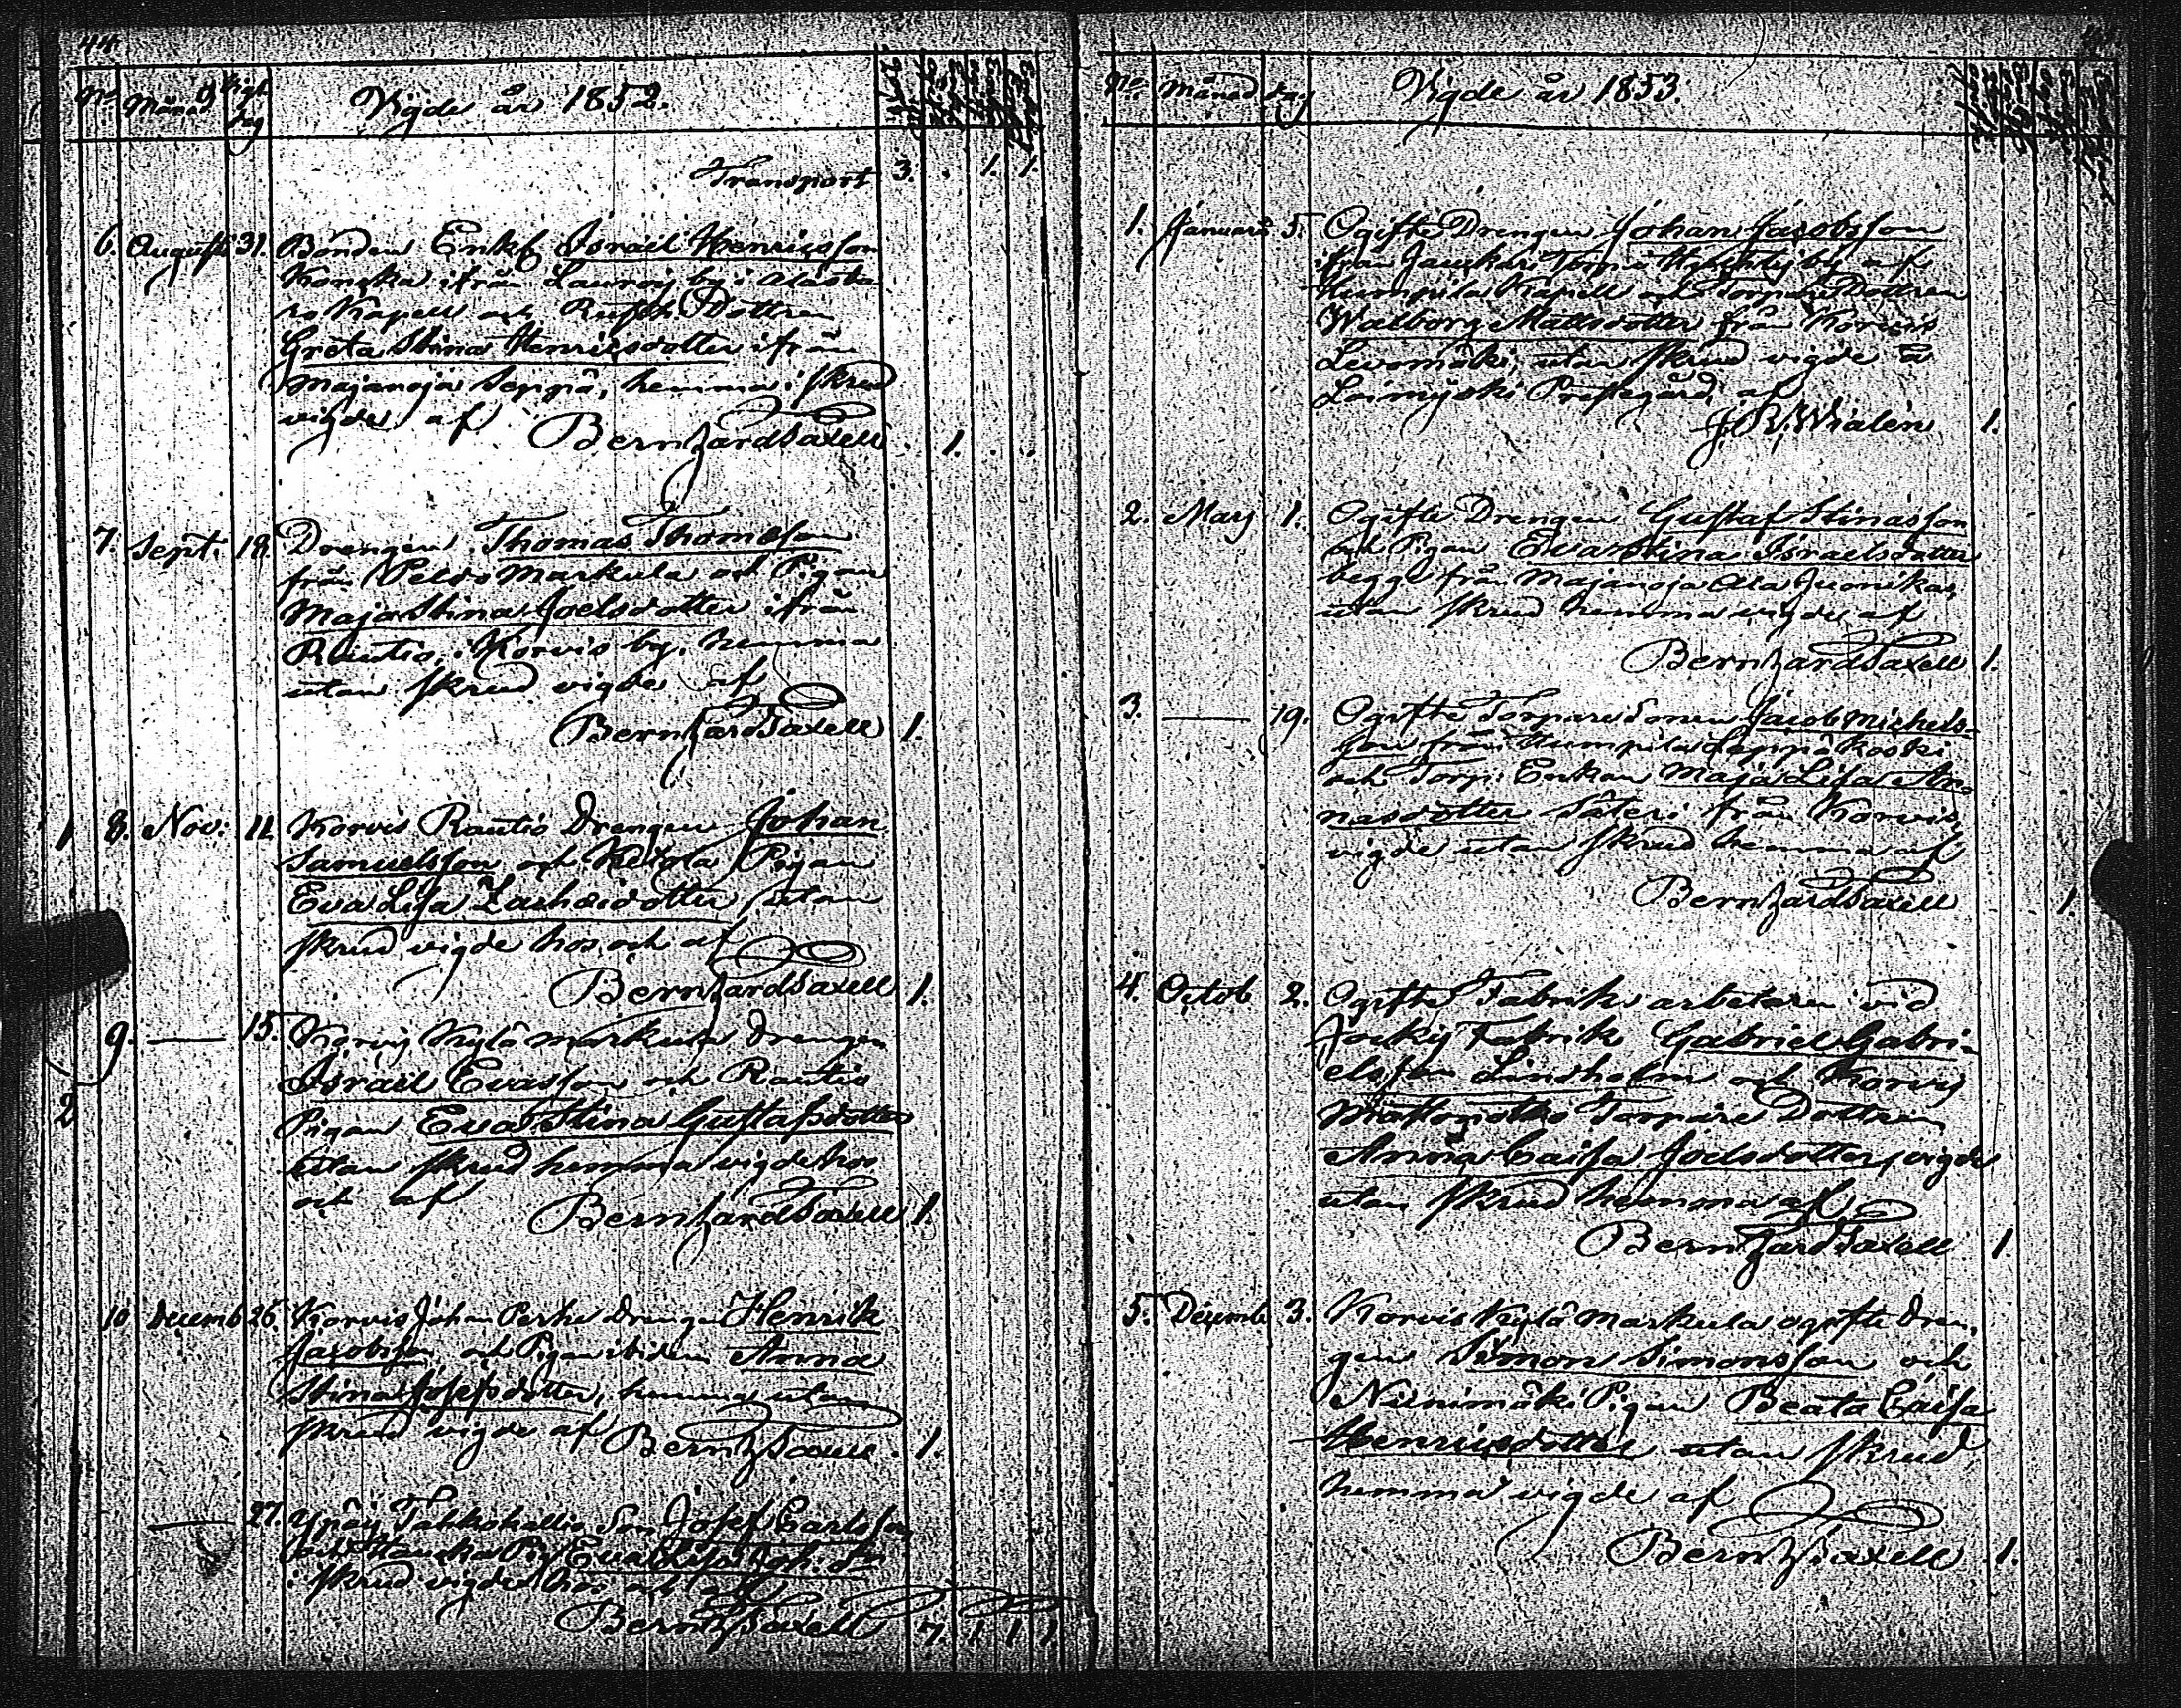 44.
No Månad Vigs dag Vigde år 1852.
Transport 3. . 1. 1.
6. August 31. Bonden Enkl Israël Henricsson
Konska ifrån Lauroij by i Alasta
ro Kapell och Rusth. Dottren
Greta Stina Henricsdotter ifrån
Majanoja Seppä, hemma i skrud
vigde af Bernhard Saxell 1.
7. Sept. 19. Drengen Thomas Thomsson
från Markula och Pigan
Maja Stina Joelsdotter ifrån
Rautio i Korvis by, hemma
utan skrud vigde af
Bernhard Saxell 1.
1 8. Nov: 11. Korvis Rautio Drengen Johan
Samuelsson och Ketola Pigan
Eva Lisa Zachrisdotter utan
skrud vigde hos och af
Bernhard Saxell 1.
9. — 15. Korvis Kylä Markula Drengen
Israël Evasson och Rautio
2
Pigan Eva Stina Gustafsdotter
utan skrud hemma vigde hos
och af Bernhard Saxell 1.
10 Decemb 26. Korvis Johan Perho drengen Henrik
Jacobsson och Pigan ibidem Anna
Stina Josefsdotter, hemma utan
skrud vigde af Bernh Saxell 1.
— 27. Ypäj Son Josef Carlsson
och Pig. Eva Lisa Joh. dr
i skrud vigde hos och af
Bernh Saxell 7. 1 1 1
No Månad dag Vigde år 1853.
1. Januarii 5. Ogifte Drengen Johan Jacobsson
ifrån by af
Humpila Kapell och Torpare Dottren
Walborg Mattsdotter från Korvis
Levomäki, utan skrud vigde å
Loimijoki Prestgård af
J. R. Wialén 1.
2. Maij 1. Ogifte Drengen Gustaf Stinasson
och Pigan Eva Stina Israelsdotter
begge från Majanoja Ala Juonikas,
utan skrud hemma vigde af
Bernhard Saxell 1.
3. — 19. Ogifte Torpare Sonen Jacob Michels-
son från Humpila Leppäkoski
och Torp. Enkan Maja Lisa An-
nasdotter Säteri från Korvis,
vigde utan skrud hemma af
Bernhard Saxell 1.
4. Octob 2. Ogifte Fabriks arbetaren vid
Jockis Fabrik Gabriel Gabri-
elsson Lindholm och Korvis
Torpare Dottren
Anna Caisa Joelsdotter, vigde
utan skrud hemma af
Bernhard Saxell 1.
5. Decemb. 3. Korvis Kylä Markula ogifte Dren-
gen Simon Simonsson och
Niinimäki Pigan Beata Caisa
Henricsdotter utan skrud
hemma vigde af
Bernh Saxell 1.